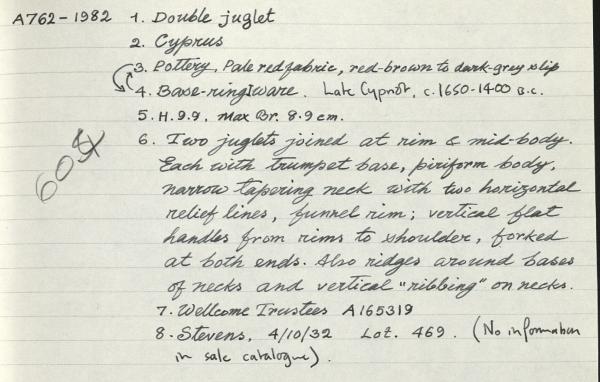 A762-1982 1. Double juglet
2. Cyprus
3. Pottery. Pale red fabric, red-brown to dark-grey slip
4. Base-ring I ware. Late Cypriot, c.1650-1400 B.C.
5. H. 9.9, max Br. 8.9 cm.
6. Two juglets joined at rim & mid-body.
Each with trumpet base, piriform body,
narrow tapering neck with two horizontal
relief lines, funnel rim; vertical flat
handles from rims to shoulder, forked
at both ends. Also ridges around bases
of necks and vertical "ribbing" on necks.
7. Wellcome Trustees A165319
8. Stevens, 4/10/32 Lot. 469. (No information
in sale catalogue).